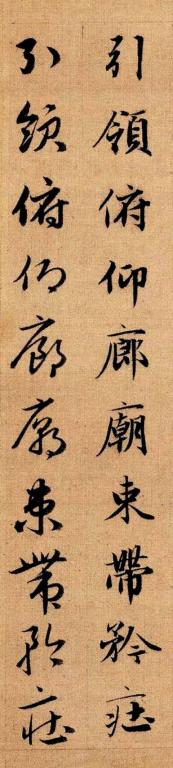 引領俯仰廊廟束帶矜莊
引領俯仰廊廟束帶矜莊